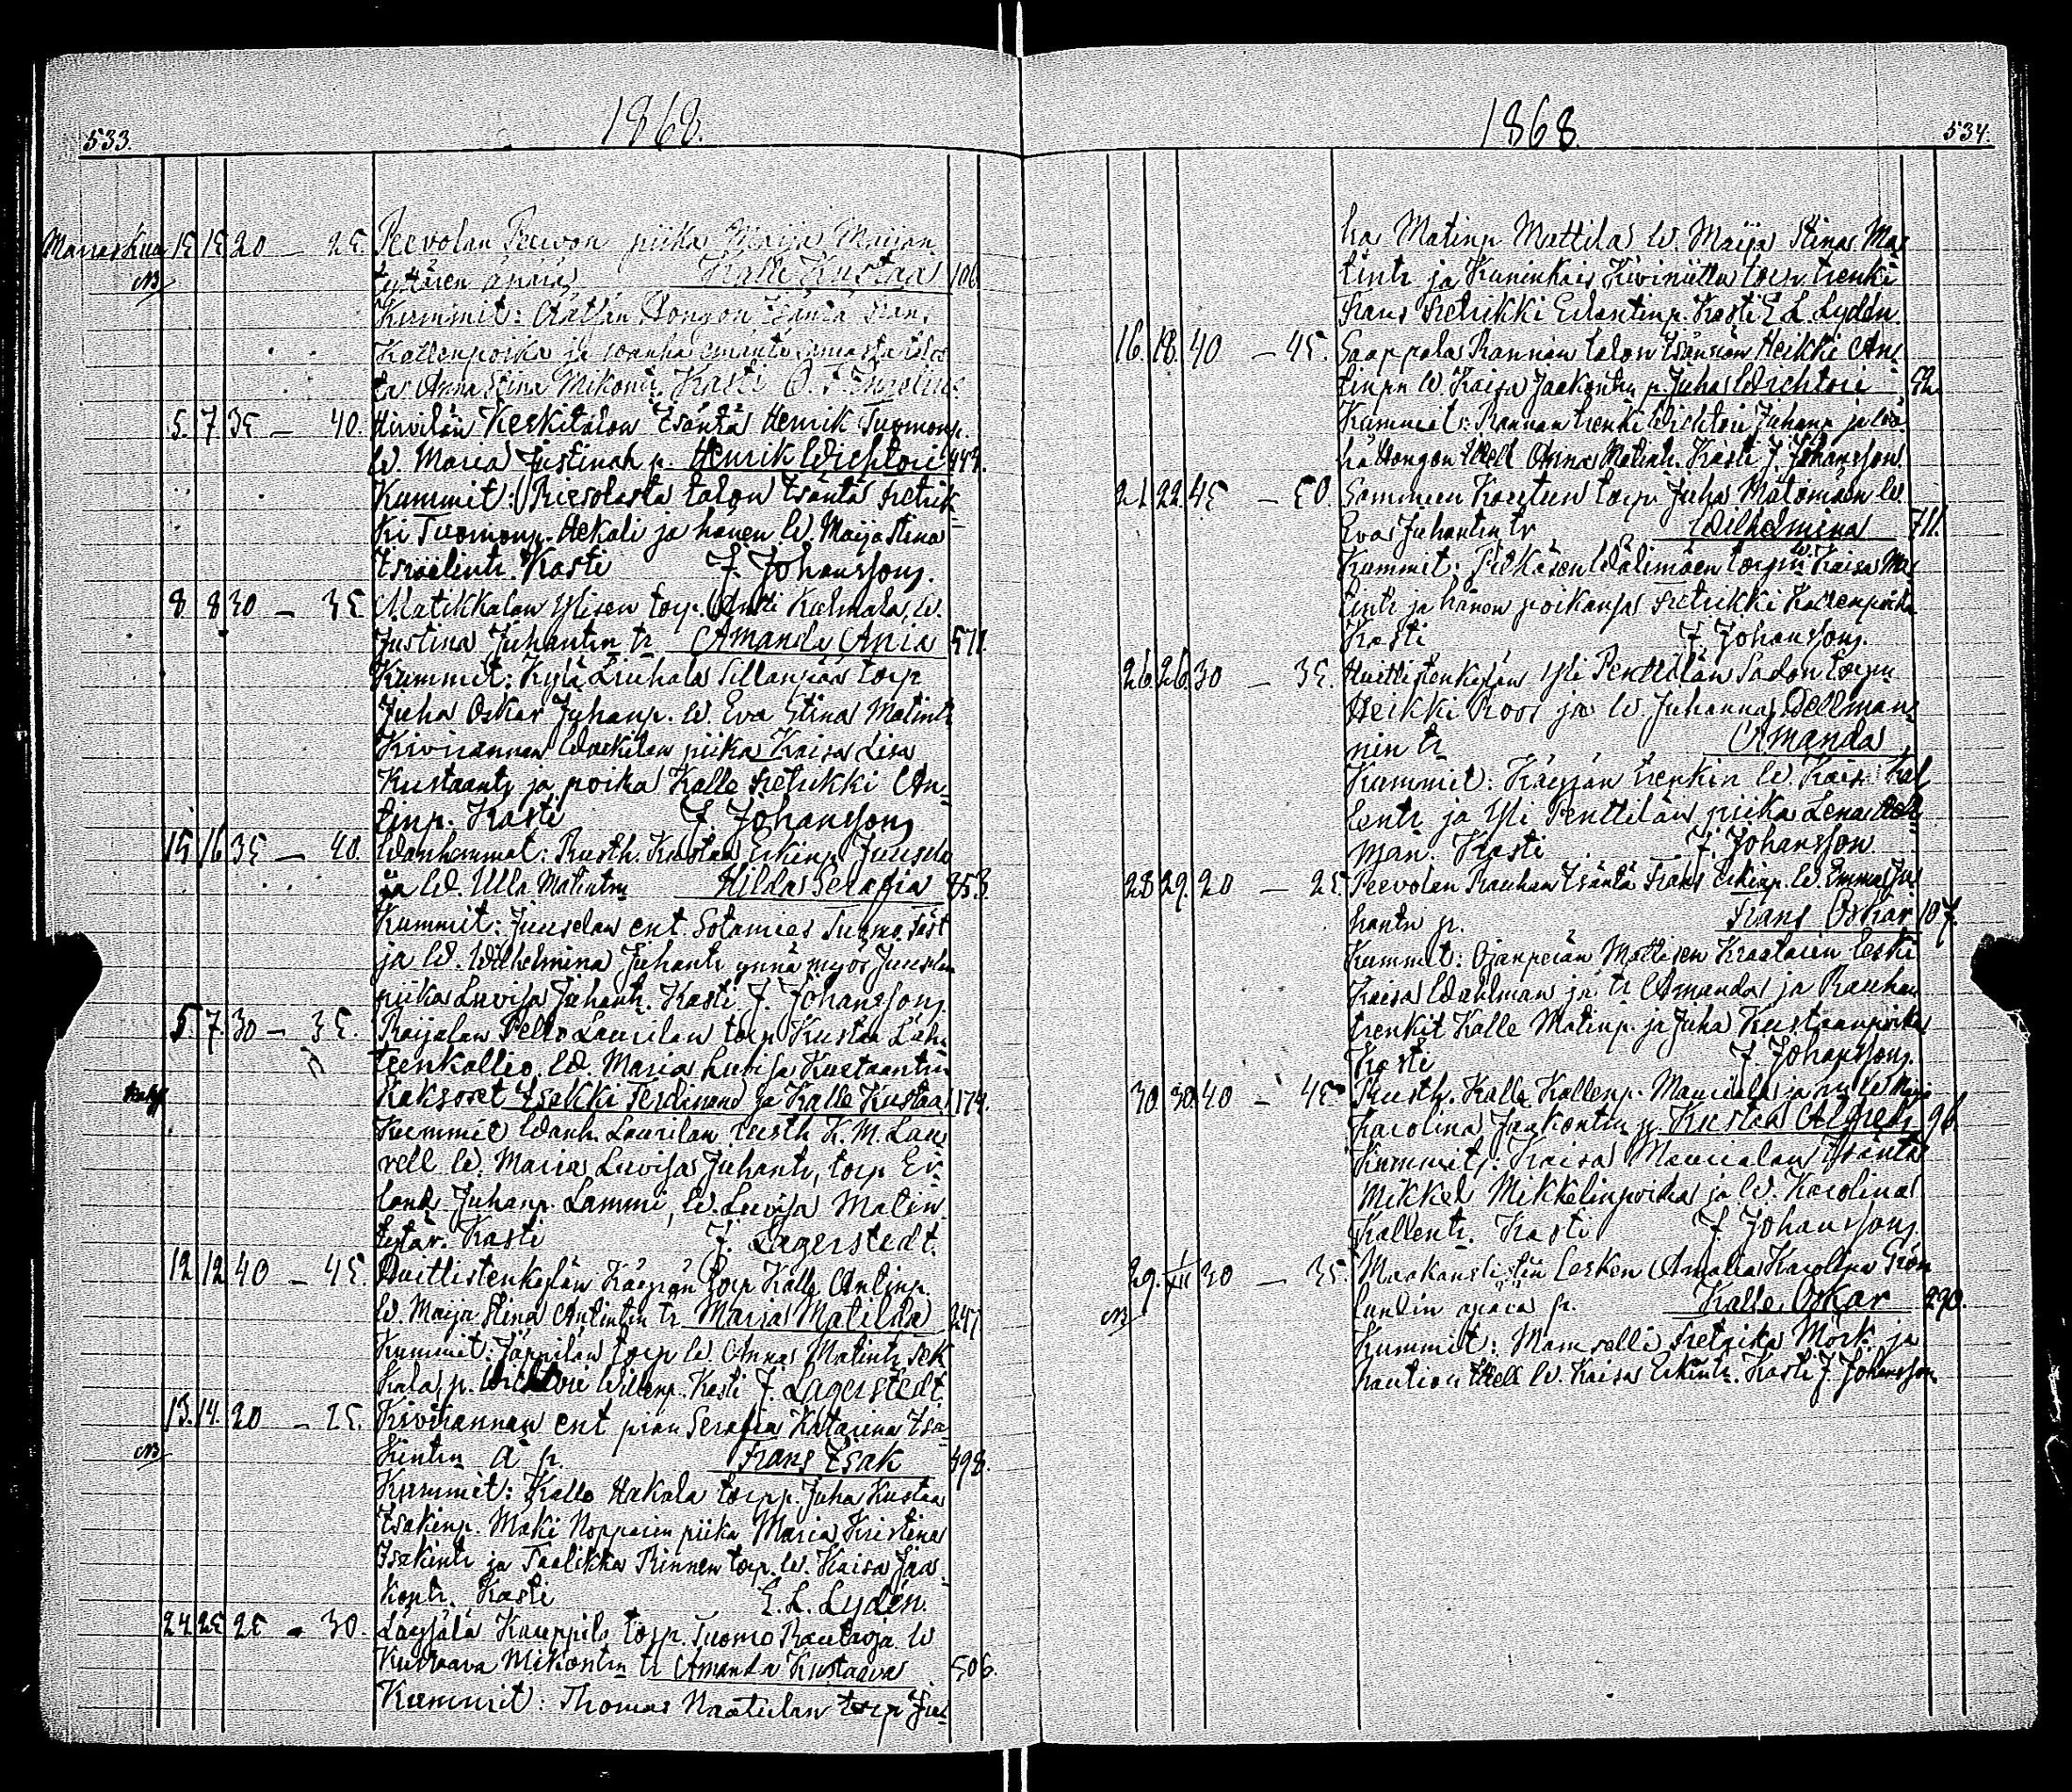 533. 1868.
Marraskuu 15 15 20 — 25. Peevolan Peevon piika Maija Maijan
NB tyttären äpärä Kalle Kustaa 106
Kummit: Isäntä Frans
Kallenpoika ja wanha emäntä samasta talos
ta Anna Stina Mikontr. Kasti
5. 7 35 — 40. Hirvilän Keskitalon Isäntä Henrik Tuomonp.
W. Maria Justinah p. Henrik Wichtori 447.
Kummit: Riesolasta talon Isäntä Fretrik
ki Tuomonp. Hekali ja hänen W. Maija Stina
Israelintr. Kasti J. Johansson.
8 8 30 — 35 Matikkalan Ylisen torp. Antti Kulmala, W.
Justina Juhantn tr Amanda Ania 571.
Kummit: Kylä Liuhala Sillanpää torp
Juha Oskar Juhanp. W. Eva Stina Matintr
Kivirannan Waekilan piika Kaisa Lisa
Kustaantr ja poika Kalle Fretrikki An-
tinp. Kasti J. Johansson
15 16 35 — 40. Wanhemmat: Rusth. Kustaa Erkinp. Juusela
ja W. Ulla Matintn Hilda Serafia 353.
Kummit: Juuselan ent. Sotamies Tuomo Fäst
ja W. Wilhelmina Juhantr ynnä myös Juuselan
piika Luvisa Juhantr. Kasti J. Johansson.
5. 7 30 — 35. Raijalan Pello Laurilan torp Kustaa Läh-
teenkallio. W. Maria Luvisa Kustaantn
Kaksoset Isakki Ferdinand ja Kalle Kustaa 174.
Kummit Wanh. Laurilan rusth K. M. Lau-
rell W. Maria Luvisa Juhantr, torp Er-
land Juhanp. Lammi, W. Luvisa Matin
tytär. Kasti J. Lagerstedt.
12 12 40 — 45. Huittistenkylän Käypän torp Kalle Antinp.
W. Maija Stina Antintn tr Maria Matilda 247
Kummit: Jäppilän torp W. Anna Matintr Sek
kala, p. Wichtori Willenp. Kasti J. Lagerstedt.
13. 14. 20 — 25. Kivirannan ent pian Serafia Katarina Isa-
NB kintn Ä p. Frans Isak 498.
Kummit: Kallo Hakala torpp. Juha Kustaa
Isakinp. Maki Nopparin piika Maria Kristina
Isakintr ja Taalikka Rinnen torp. W. Kaisa Jaa-
kontr. Kasti E. L. Lydén.
24 25 25 — 30. Löysälä Kauppila torp. Tuomo Rautaoja W
Kustaava Mikontn tr Amanda Kustaava 506.
Kummit: Thomas Naatulan torp Ju-
1868. 534.
ha Matinp Mattila W. Maija Stina Ma-
tintr ja Kuninkais Kiviniitta torp trenki
Frans Fretrikki Erlantinp. Kasti E. L. Lydén.
16. 18. 40 — 45. Sappala Rannan talon Isännän Heikki An-
tinpn W. Kaisa Jaakontn p. Juha Wichtori 52.
Kummit: Rannan trenki Wichtori Juhanp ja
Hongon Anna Matintr. Kasti J. Johansson.
21 22. 45 — 50. Sammun Koutun torp. Juha Matomäen W.
Eva Juhantn tr Wilhelmina 711.
Kummit: Pitkäsen Wälimäen torpin W. Kaisa Ma-
tintr ja hänen poikansa Fretrikki Kallenpoika
Kasti J. Johansson.
26. 26. 30 — 35. Huittistenkylän Yli Penttilän Sadon torpn
Heikki Roos ja W. Juhanna Dellman-
nin tr Amanda
Kummit: Käypän trenkin W. Kaisa Kal
lentr ja Yli Penttilän piika Lena Dell-
man. Kasti J. Johansson.
28 29. 20 — 25 Peevolan Rauhan Isäntä Frans Erkinp. W. Emma Ju-
hantn p. Frans Oskar 107.
Kummit: Ojanperän Mattisen Kraatarin Leski
Kaisa Wahlman ja tr Amanda ja Rauhan
trenkit Kalle Matinp. ja Juha Kustaanpoika
Kasti J. Johansson.
30. 30. 40 — 45 Rusth. Kalle Kallenp. Mauriala ja W. Maija
Karolina Jaakontn p. Kustaa Alfred 96.
Kummit: Kaisa Maurialan Isäntä
Mikkel Mikkelinpoika ja W. Karolina
Kallentr. Kasti J. Johansson.
29. XII 30 — 35. Maakanslistin Lesken Amalia Karolina Grön
NB lundin äpärä p. Kalle Oskar 290.
Kummit: Mamselli Fretrika Mörk ja
W. Kaisa Erkintr. Kasti J. Johansson